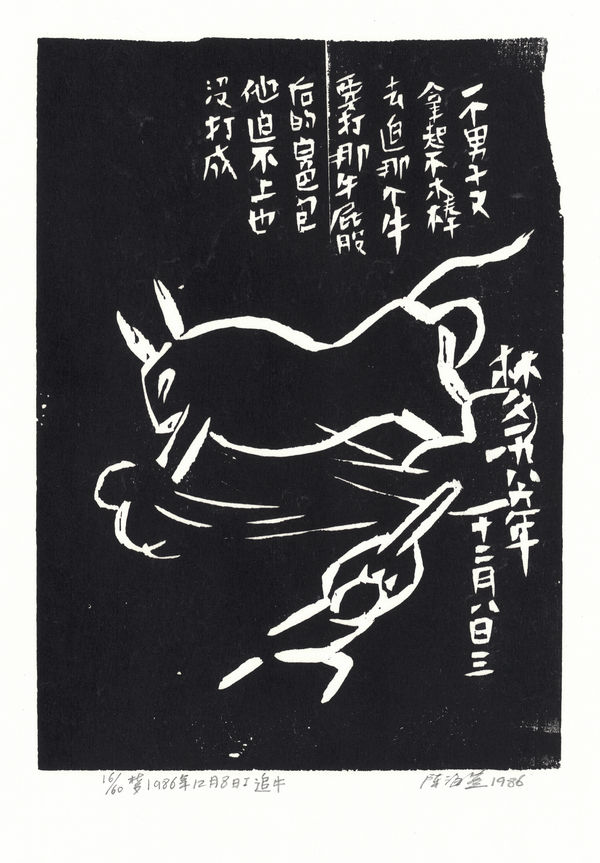 一个男子又
拿起个木棒
去追那个牛
要打那牛屁股
后的白色包
他追不上也
没打成
梦一九八六年
十二月八日三
16/60 梦1986年12月8日I 追牛
陈海燕 1986